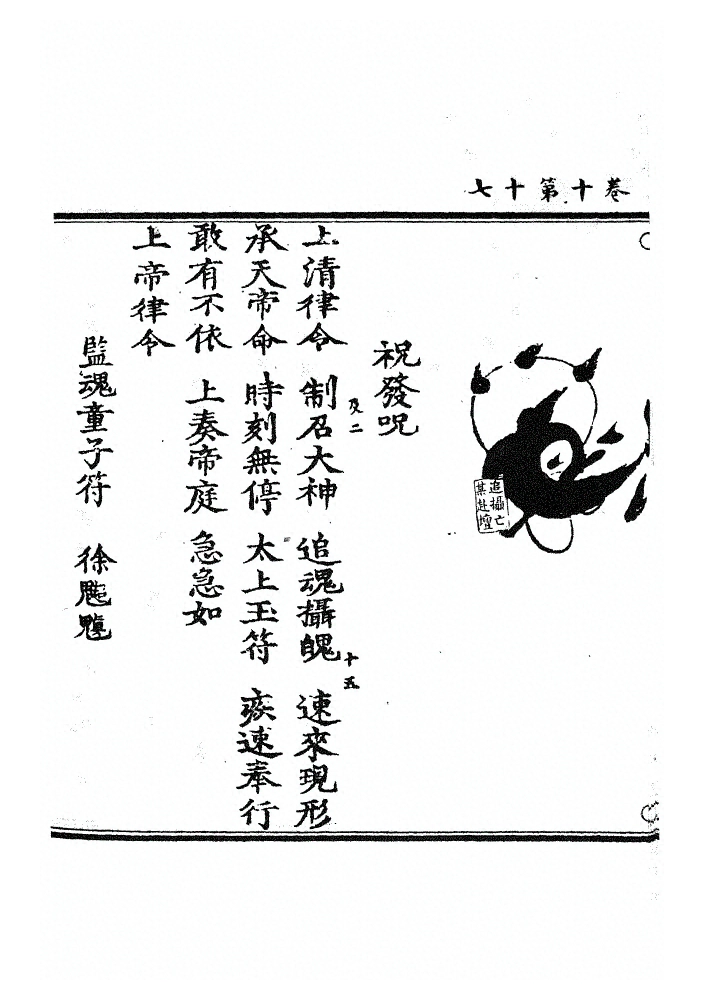 卷十第十七
追攝亡
某赴壇
祝發呪
上清律令　制召大神　追魂攝魄　速來現形
及二
十五
承天帝命　時刻無停　太上玉符　疾速奉行
敢有不依　上奏帝庭　急急如
上帝律令
監魂童子符　徐